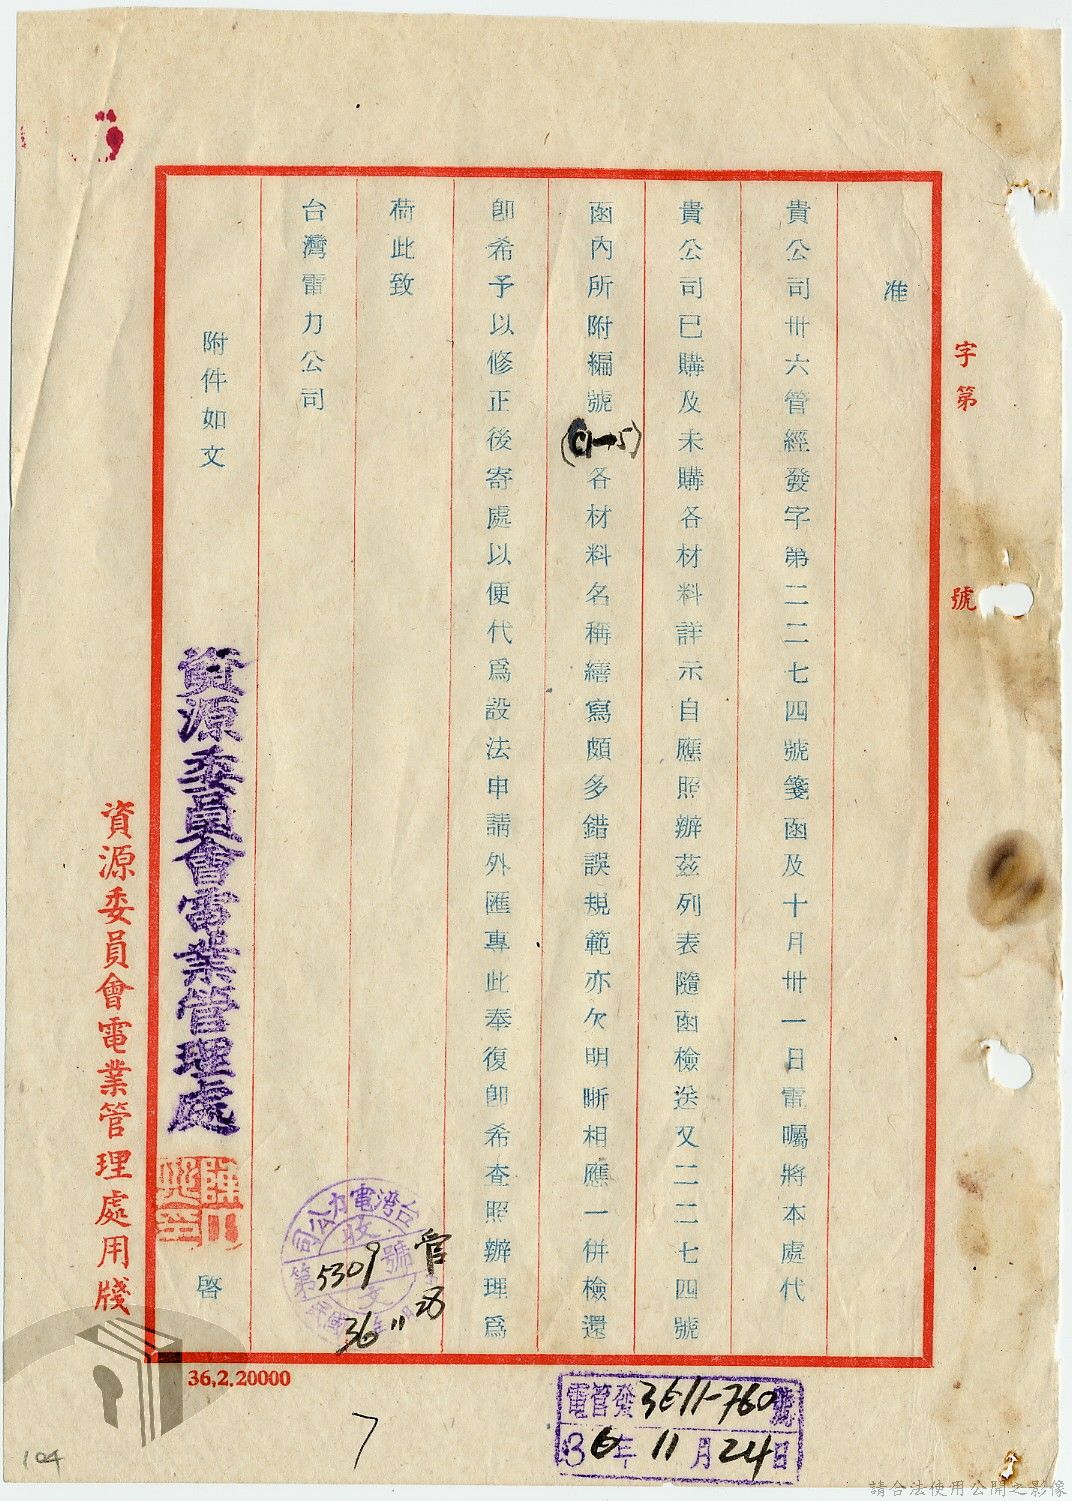 字第　　　號
准
貴公司卅六管經發字第二二七四號箋函及十月卅一日電囑將本處代
貴公司已購及未購各材料詳示自應照辦茲列表隨函檢送又二二七四號
函內所附編號(C1-5)各材料名稱繕寫頗多錯誤規範亦欠明晰相應一併檢還
卽希予以修正後寄處以便代爲設法申請外匯專此奉復卽希查照辦理爲
荷此致
台灣電力公司
附件如文
資源委員會電業管理處
啓
資源委員會電業管理處用牋
台灣電力公司
收文
第5309號
民國36年11
管
36,2.20000
電管發3611-760號
36年11月24日
7
104
請合法使用公開之影像